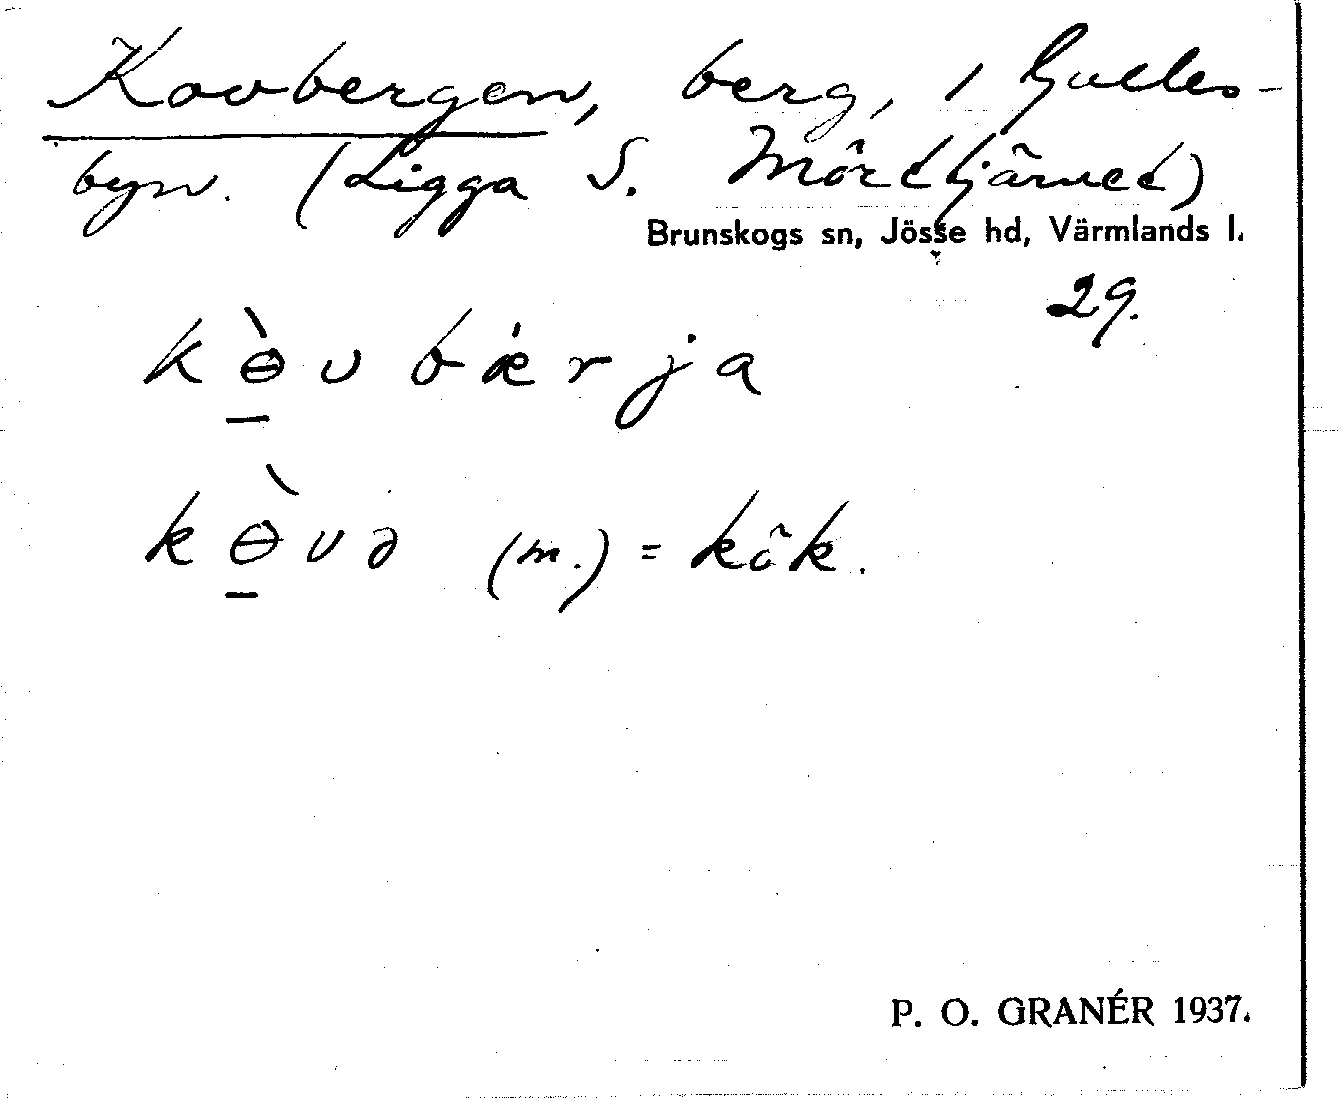 Kovbergen, berg, i Gulles-
byn. (Ligga S. Mörttjärnet)
Brunskogs sn, Jösse hd, Värmlands l.
29.
kɵ̠̀v bǽrja
kɵ̠̀və (m.) = kök.
P. O. GRANÉR 1937.